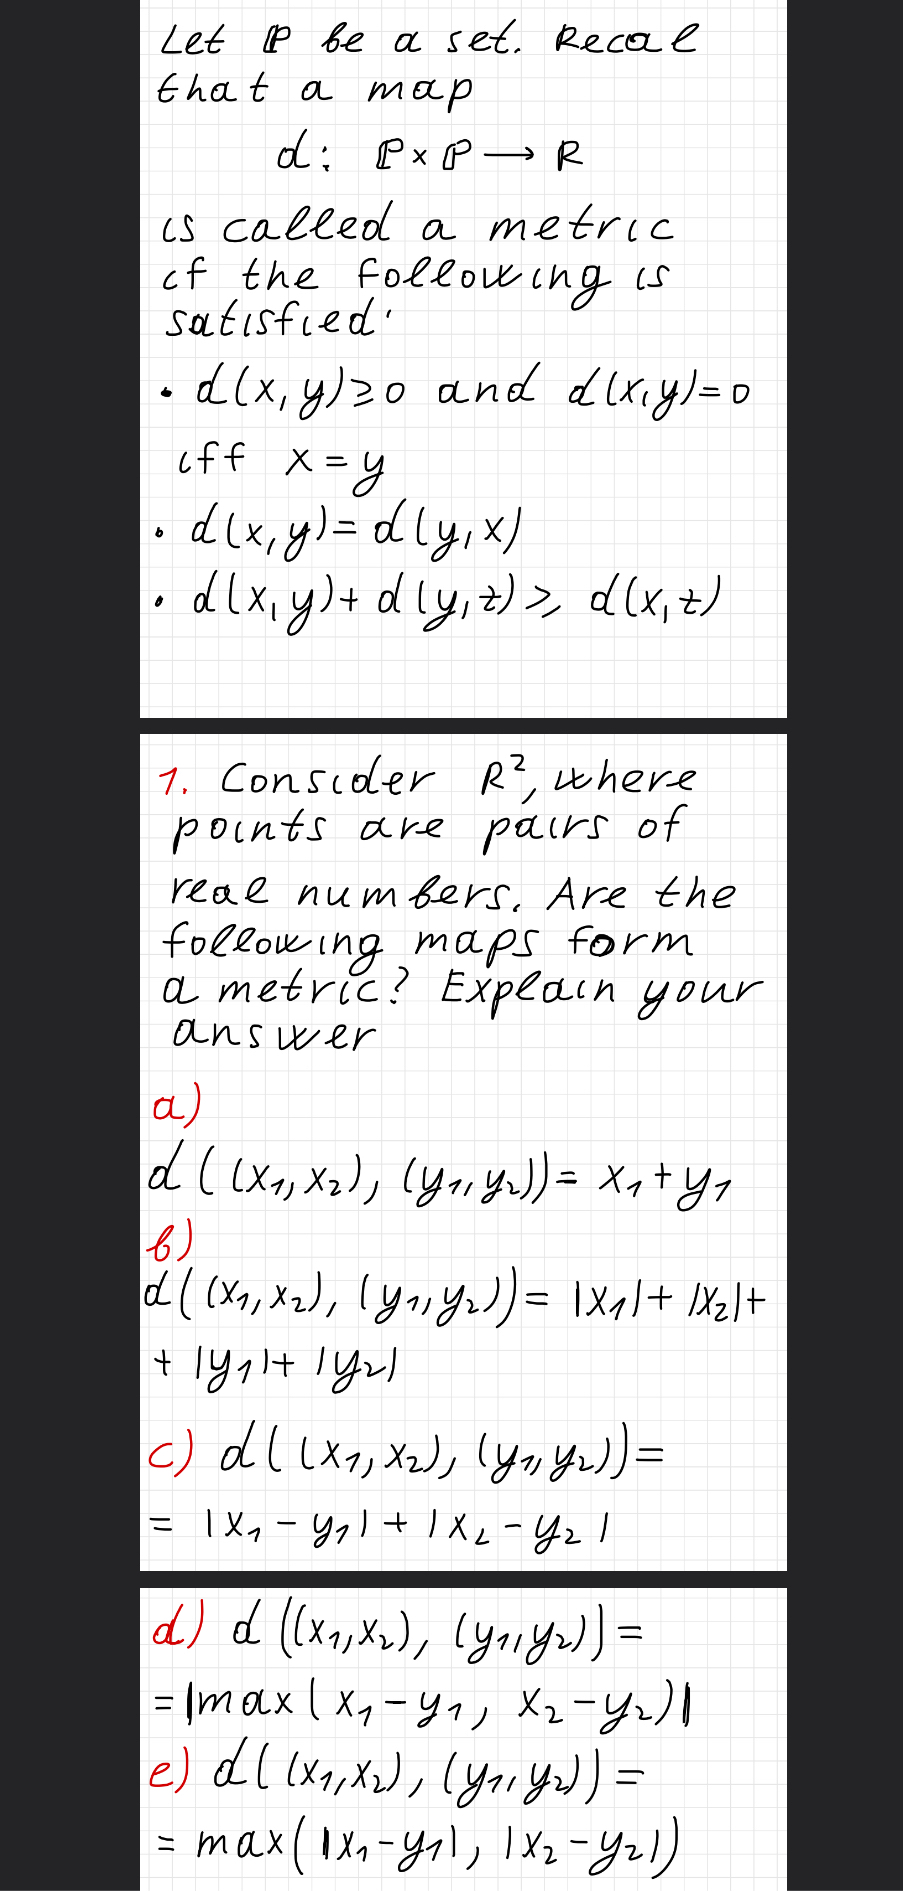 Let ℙ be a set. Recal
that a map
d: ℙ×ℙ → R
is called a metric
if the following is
satisfied:
• d(x,y)≥0 and d(x,y)=0
iff x=y
• d(x,y)=d(y,x)
• d(x,y)+d(y,z)≥ d(x,z)
1. Consider R², where
points are pairs of
real numbers. Are the
following maps form
a metric? Explain your
answer
a)
d((x₁,x₂), (y₁,y₂))= x₁+y₁
b)
d((x₁,x₂), (y₁,y₂))= |x₁|+|x₂|+
+ |y₁|+ |y₂|
c) d((x₁,x₂), (y₁,y₂))=
= |x₁-y₁|+|x₂-y₂|
d) d((x₁,x₂), (y₁,y₂))=
=|max(x₁-y₁, x₂-y₂)|
e) d((x₁,x₂), (y₁,y₂))=
= max(|x₁-y₁|, |x₂-y₂|)